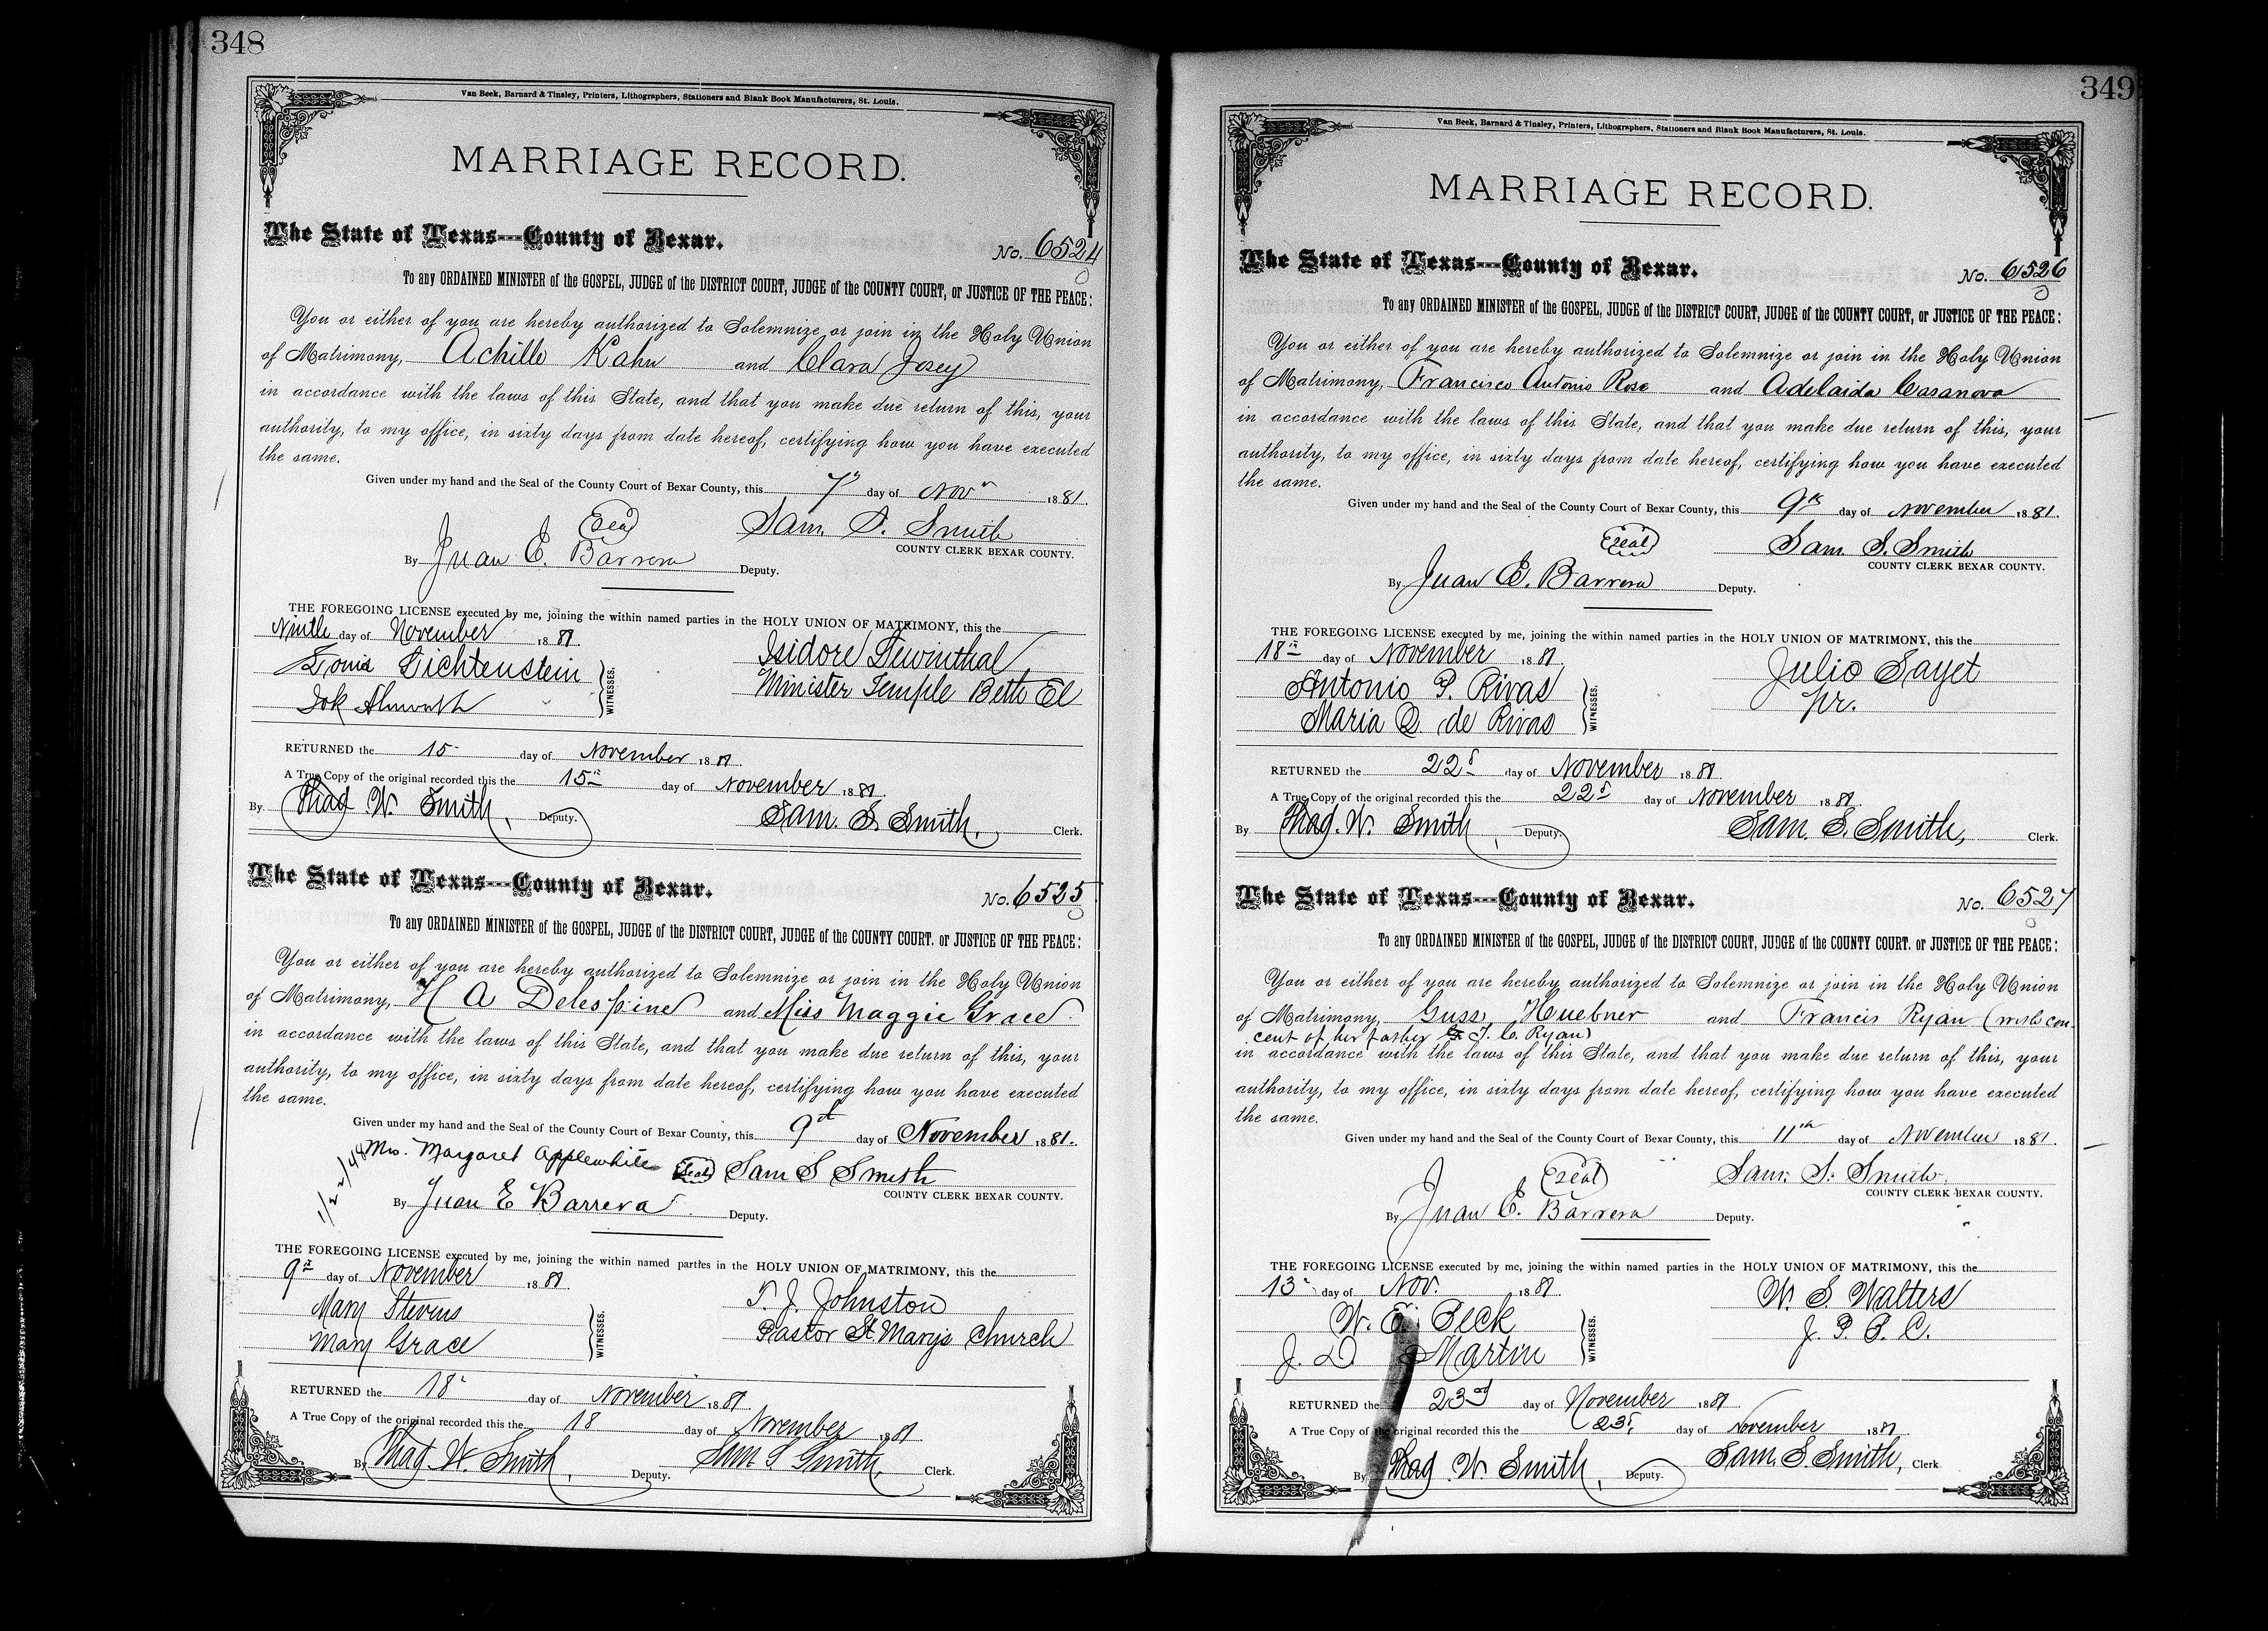 348
Van Beek, Barnard & Tinsley, Printers, Lithographers, Stationers and Blank Book Manufacturers, St. Louis.
MARRIAGE RECORD.
The State of Texas---County of Bexar.
No. 6524
To any ORDAINED MINISTER of the GOSPEL, JUDGE of the DISTRICT COURT, JUDGE of the COUNTY COURT, or JUSTICE OF THE PEACE:
You or either of you are hereby authorized to Solemnize or join in the Holy Union
of Matrimony, Achille Kahn and Clara Josey
in accordance with the laws of this State, and that you make due return of this, your
authority, to my office, in sixty days from date hereof, certifying how you have executed
the same.
Given under my hand and the Seal of the County Court of Bexar County, this 7th day of Nov 1881.
(Seal) Sam. S. Smith
COUNTY CLERK BEXAR COUNTY.
By Juan E. Barrera Deputy.
THE FOREGOING LICENSE executed by me, joining the within named parties in the HOLY UNION OF MATRIMONY, this the
Ninth day of November 1881. Isidore Lewinthal
Louis Lichtenstein Minister Temple Beth El
WITNESSES.
RETURNED the 15 day of November 1881.
A True Copy of the original recorded this the 15th day of November 1881.
By Thad W. Smith, Deputy. Sam. S. Smith, Clerk.
The State of Texas---County of Bexar.
No. 6525
To any ORDAINED MINISTER of the GOSPEL, JUDGE of the DISTRICT COURT, JUDGE of the COUNTY COURT. or JUSTICE OF THE PEACE:
You or either of you are hereby authorized to Solemnize or join in the Holy Union
of Matrimony, H A Delespine and Miss Maggie Grace
in accordance with the laws of this State, and that you make due return of this, your
authority, to my office, in sixty days from date hereof, certifying how you have executed
the same.
Given under my hand and the Seal of the County Court of Bexar County, this 9th day of November 1881.
1/22/48 Mrs. Margaret Applewhite (Seal) Sam S Smith
COUNTY CLERK BEXAR COUNTY.
By Juan E Barrera Deputy.
THE FOREGOING LICENSE executed by me, joining the within named parties in the HOLY UNION OF MATRIMONY, this the
9th day of November 1881. T. J. Johnston
Mary Stevens Pastor St Mary's Church
Mary Grace WITNESSES.
RETURNED the 18 day of November 1881.
A True Copy of the original recorded this the 18 day of November 1881.
By Thad W. Smith, Deputy. Sam S Smith, Clerk.
349
Van Beek, Barnard & Tinsley, Printers, Lithographers, Stationers and Blank Book Manufacturers, St. Louis.
MARRIAGE RECORD.
The State of Texas---County of Bexar.
No. 6526
To any ORDAINED MINISTER of the GOSPEL, JUDGE of the DISTRICT COURT, JUDGE of the COUNTY COURT, or JUSTICE OF THE PEACE:
You or either of you are hereby authorized to Solemnize or join in the Holy Union
of Matrimony, Francisco Antonio Rose and Adelaida Casanova
in accordance with the laws of this State, and that you make due return of this, your
authority, to my office, in sixty days from date hereof, certifying how you have executed
the same.
Given under my hand and the Seal of the County Court of Bexar County, this 9th day of November 1881.
(Seal) Sam S. Smith
COUNTY CLERK BEXAR COUNTY.
By Juan E. Barrera Deputy.
THE FOREGOING LICENSE executed by me, joining the within named parties in the HOLY UNION OF MATRIMONY, this the
18th day of November 1881. Julio Sayet
Antonio P. Rivas pr.
Maria Q. de Rivas WITNESSES.
RETURNED the 22d day of November 1881.
A True Copy of the original recorded this the 22d day of November 1881.
By Thad. W. Smith, Deputy. Sam. S. Smith, Clerk.
The State of Texas---County of Bexar.
No. 6527
To any ORDAINED MINISTER of the GOSPEL, JUDGE of the DISTRICT COURT, JUDGE of the COUNTY COURT. or JUSTICE OF THE PEACE:
You or either of you are hereby authorized to Solemnize or join in the Holy Union
of Matrimony, Guss Huebner and Francis Ryan (with con-
cent of her father T. C. Ryan)
in accordance with the laws of this State, and that you make due return of this, your
authority, to my office, in sixty days from date hereof, certifying how you have executed
the same.
Given under my hand and the Seal of the County Court of Bexar County, this 11th day of November 1881.
(Seal) Sam. S. Smith
COUNTY CLERK BEXAR COUNTY.
By Juan E. Barrera Deputy.
THE FOREGOING LICENSE executed by me, joining the within named parties in the HOLY UNION OF MATRIMONY, this the
13 day of Nov. 1881. W. S. Walters
W. E. Beck J. P. B. C.
J. D Martin WITNESSES.
RETURNED the 23rd day of November 1881.
A True Copy of the original recorded this the 23d day of November 1881
By Thad. W Smith, Deputy. Sam. S. Smith, Clerk.